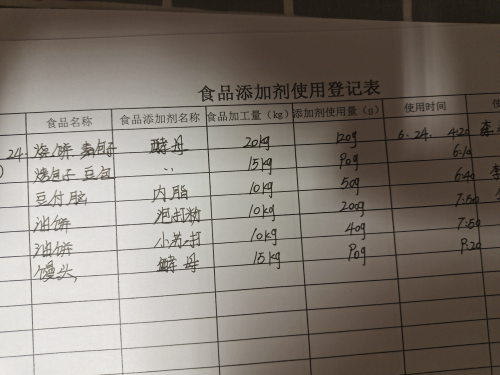 食品添加剂使用登记表
食品名称 食品添加剂名称 食品加工量（kg） 添加剂使用量（g） 使用时间 使
24 烧饼 酵母 20kg 120g 6.24. 4:20
包子 豆包 〃 15kg 90g 6:10
豆付脑 内脂 10kg 50g 6:40
油饼 泡打粉 10kg 200g 7:50
油饼 小苏打 10kg 40g 7:50
馒头 酵母 15kg 90g